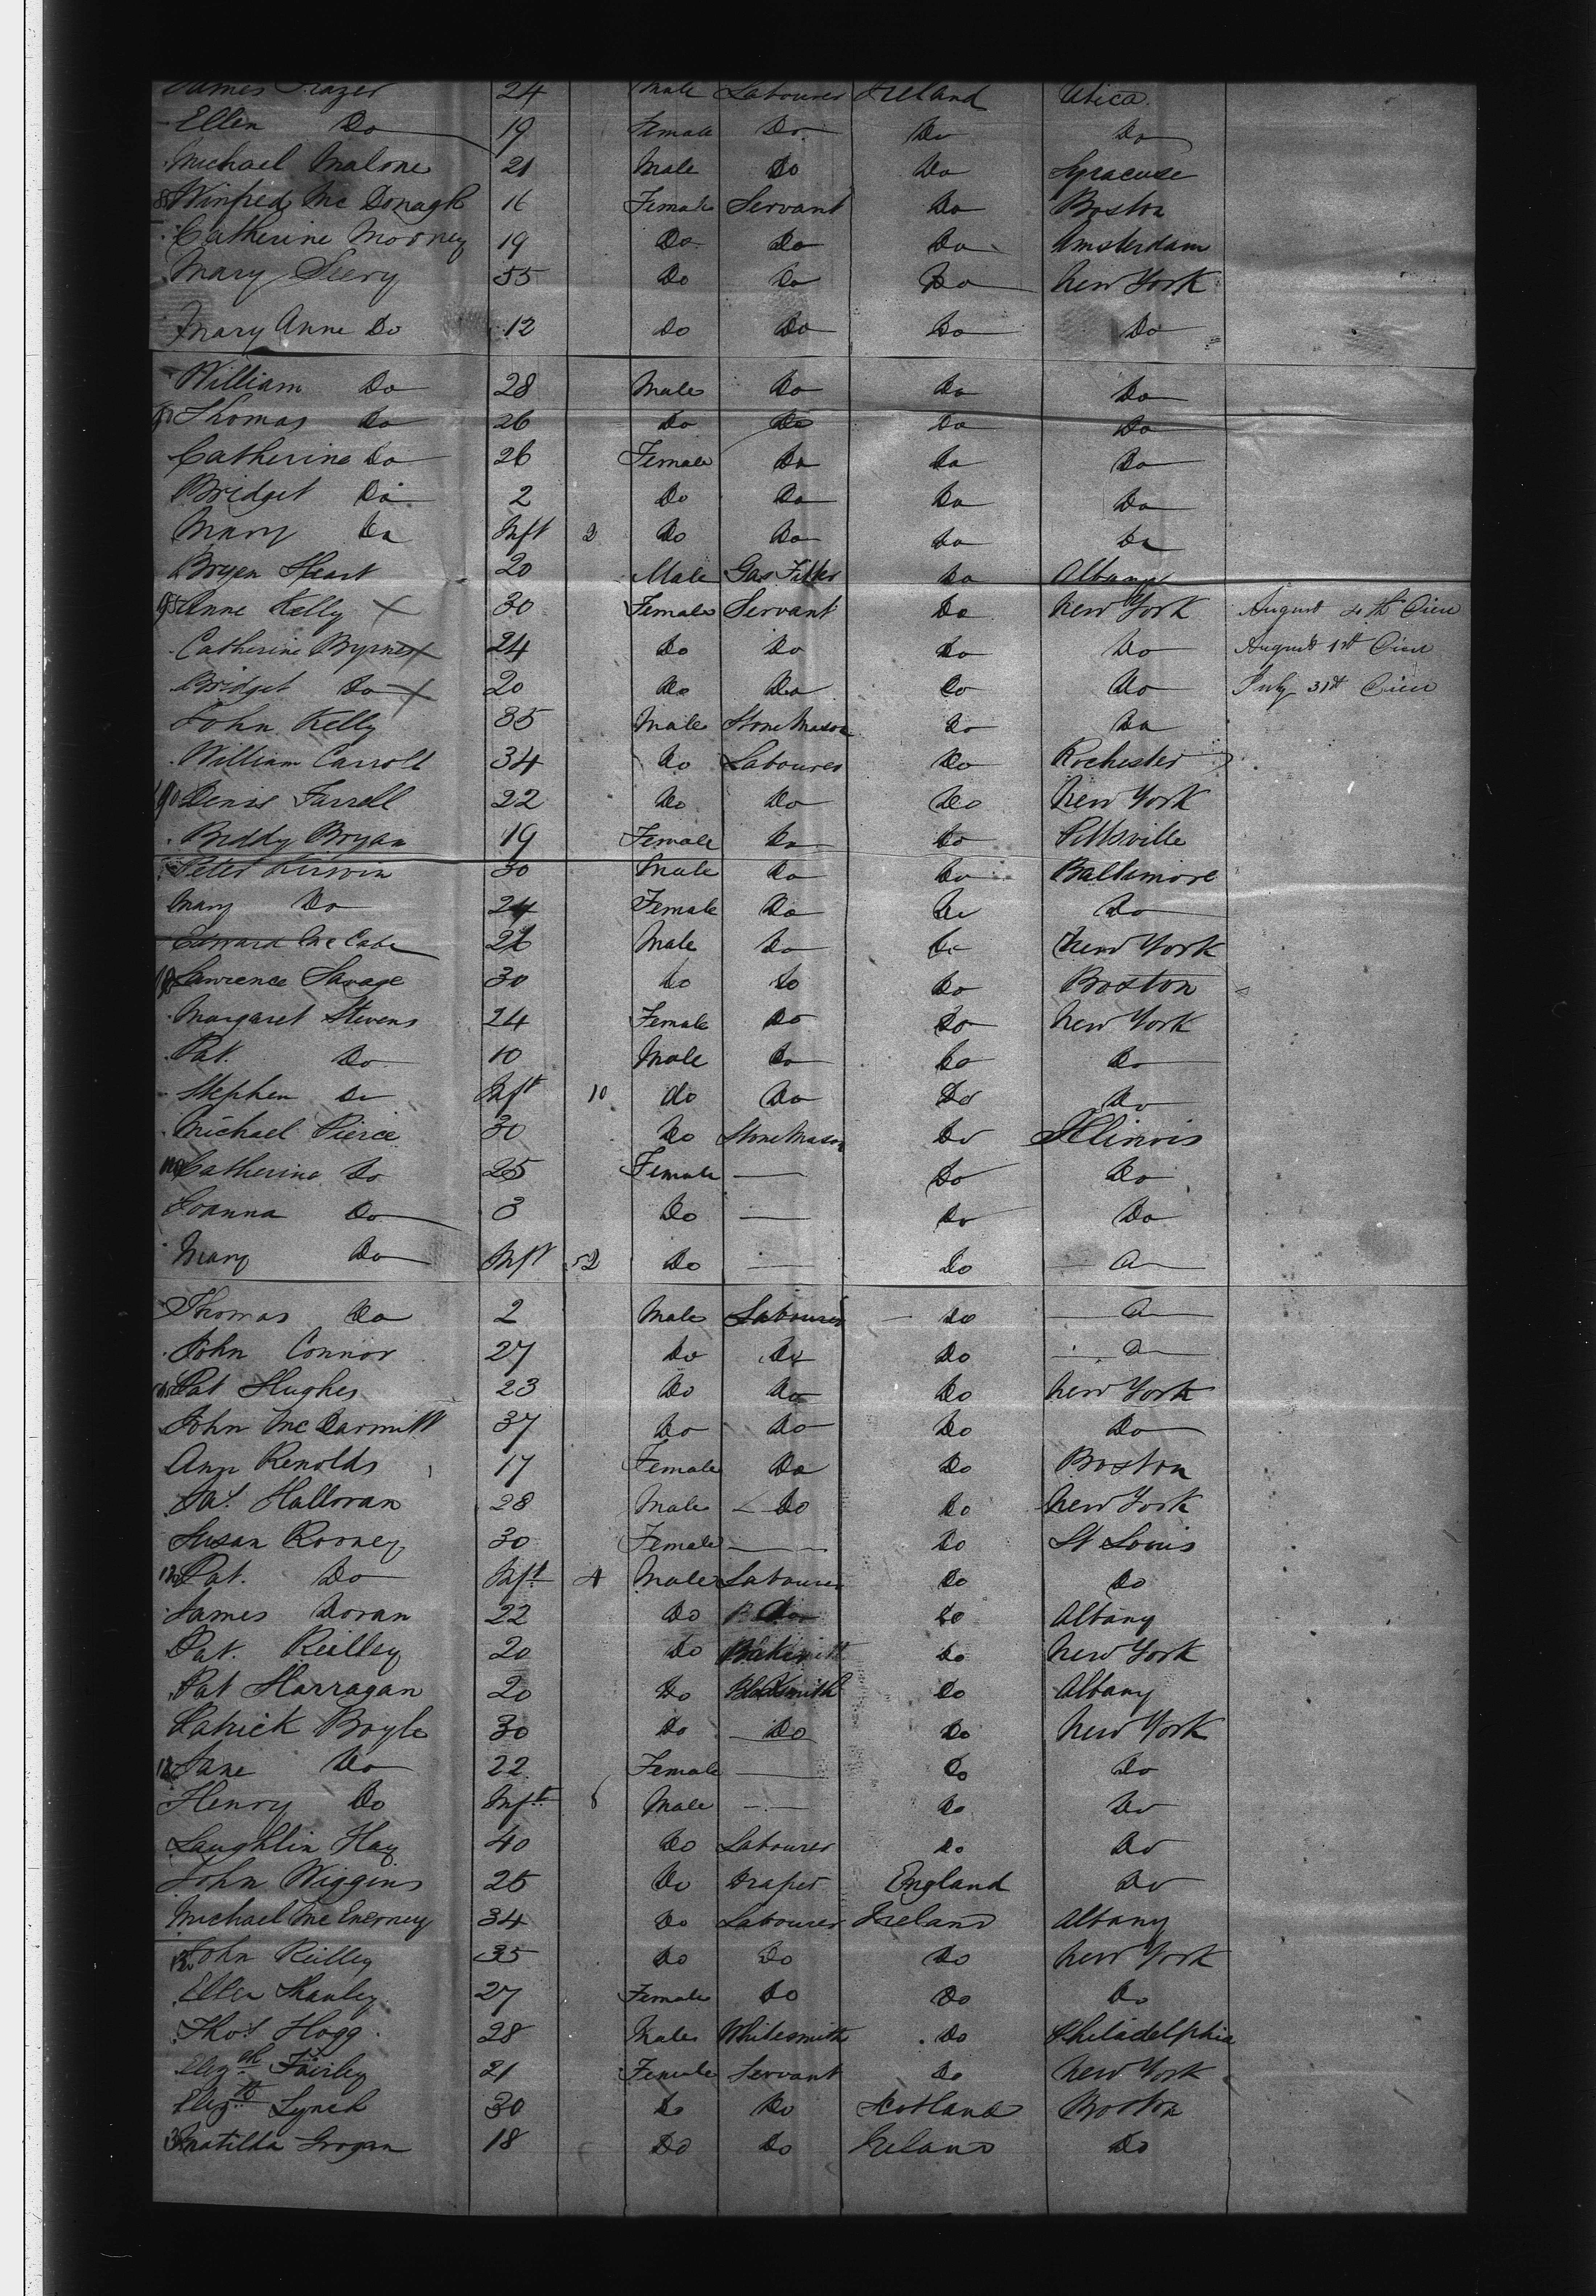 James Frazer 24 Male Labourer Ireland Utica
Ellen Do 19 Female Do Do Do
Michael Malone 21 Male Do Do Syracuse
Winfred Mc Donagh 16 Female Servant Do Boston
Catherine Mooney 19 Do Do Do Amsterdam
Mary Seery 55 Do Do Do New York
Mary Anne Do 12 Do Do Do Do
William Do 28 Male Do Do Do
Thomas Do 26 Do Do Do Do
Catherine Do 26 Female Do Do Do
Bridget Do 2 Do Do Do Do
Mary Do Inft 2 Do Do Do Do
Bryen Heart 20 Male Gas Fitter Do Albany
Anne Kelly X 30 Female Servant Do New York August 4th Died
Catherine Byrnes X 24 Do Do Do Do August 1st Died
Bridget Do X 20 Do Do Do Do July 31st Died
John Kelly 35 Male Stone Mason Do Do
William Carroll 34 Do Labourer Do Rochester
Denis Farrell 22 Do Do Do New York
Biddy Bryan 19 Female Do Do Pittsville
Peter Kerwin 30 Male Do Do Baltimore
Mary Do 24 Female Do Do Do
Edward McCabe 26 Male Do Do New York
Lawrence Savage 30 Do Do Do Boston
Margaret Stevens 24 Female Do Do New York
Pat. Do 10 Male Do Do Do
Stephen Do Inft 10 Do Do Do Do
Michael Pierce 30 Do Stone Mason Do Illinois
110 Catherine Do 25 Female — Do Do
Joanna Do 3 Do — Do Do
Mary Do Inft Do — Do Do
Thomas Do 2 Male Labourer Do Do
John Connor 27 Do Do Do Do
Pat Hughes 23 Do Do Do New York
John McDarmitt 37 Do Do Do Do
Ann Renolds 17 Female Do Do Boston
Pat. Halloran 28 Male Do Do New York
Susan Rooney 30 Female — Do St Louis
120 Pat. Do Inft 4 Male Labourer Do Do
James Doran 22 Do Do Do Albany
Pat. Reilley 20 Do Do New York
Pat Harragan 20 Do Blacksmith Do Albany
Patrick Boyle 30 Do Do Do New York
Jane Do 22 Female — Do Do
Henry Do Inft 6 Male — Do Do
Laughlin Hay 40 Do Labourer Do Do
John Wiggins 25 Do Draper England Do
Michael Mc Enerney 34 Do Labourer Ireland Albany
130 John Reilley 35 Do Do Do New York
Ellen Stanley 27 Female Do Do Do
Thos Hogg 28 Male Whitesmith Do Philadelphia
Elizth Fairley 21 Female Servant Do New York
Elizth Lynch 30 Do Do Scotland Boston
Matilda Grogan 18 Do Do Ireland Do